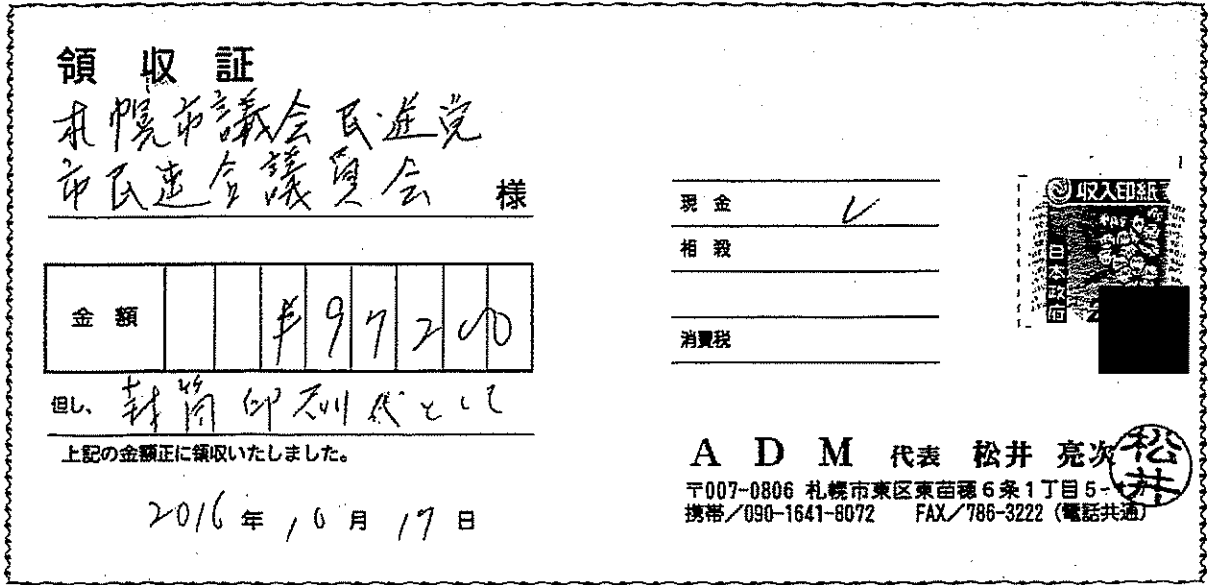 領収証
札幌市議会民進党
市民連合議員会 様
金額 ¥97200
但し、封筒印刷代として
上記の金額正に領収いたしました。
2016年10月17日
現金 レ
相殺
消費税
収入印紙
日本政府
ADM 代表 松井 亮次
松井
〒007-0806 札幌市東区東苗穂6条1丁目5-
携帯/090-1641-8072 FAX/786-3222(電話共通)